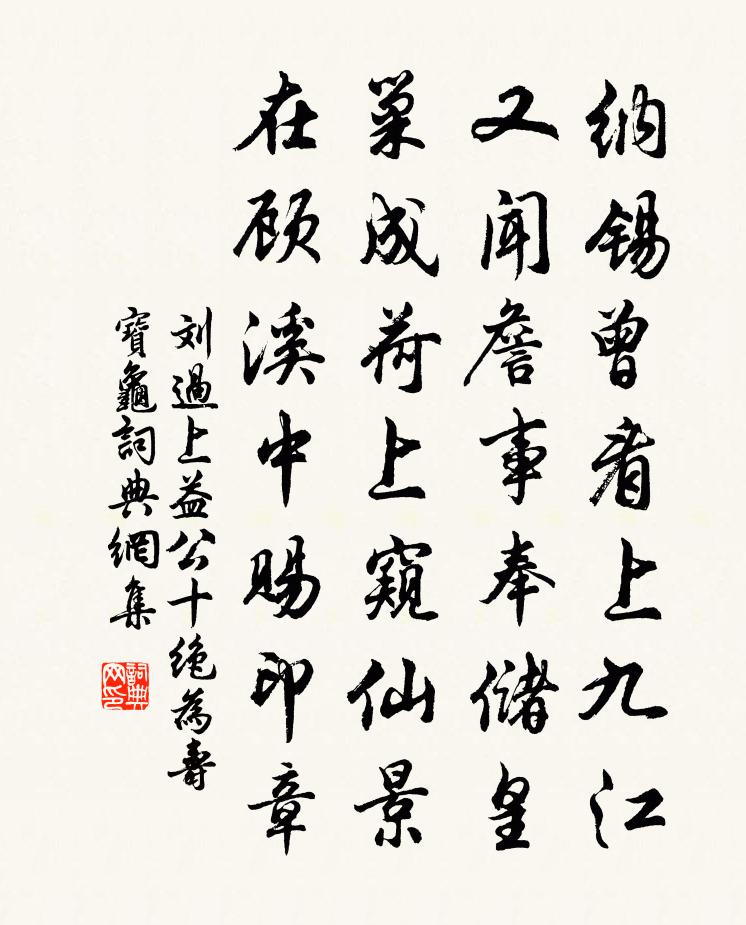 納錫曾看上九江
又聞詹事奉儲皇
巢成荷上窺仙景
在顾溪中賜印章
刘過上益公十絶為壽
寶龜詞典網集
詞典网印